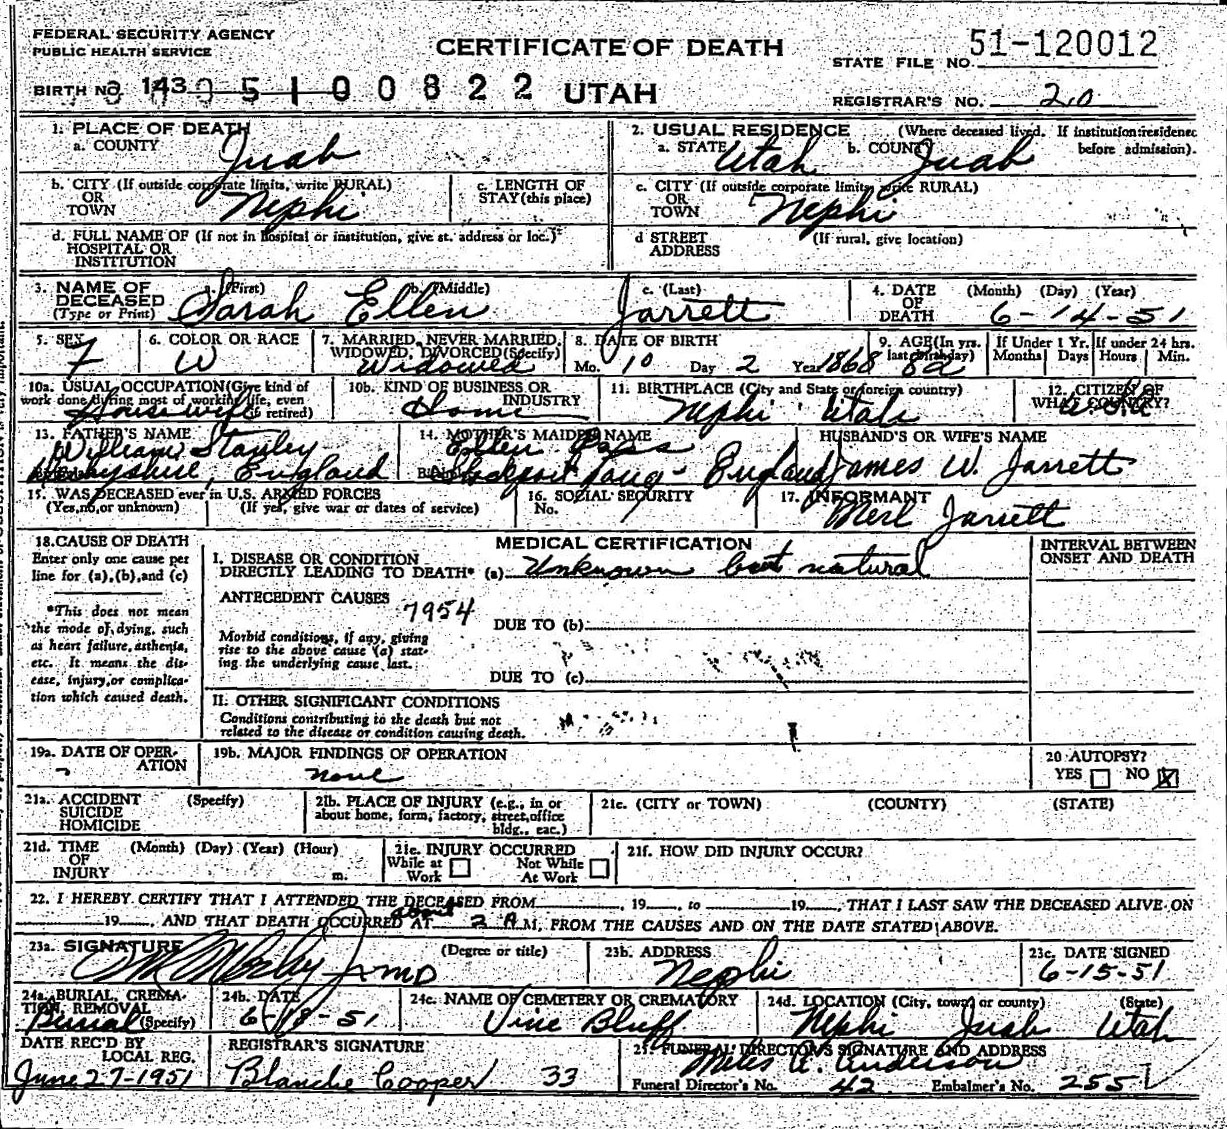 FEDERAL SECURITY AGENCY
PUBLIC HEALTH SERVICE
CERTIFICATE OF DEATH
UTAH
STATE FILE NO. 51-120012
BIRTH NO. 143 05100822
REGISTRAR'S NO. 20
1. PLACE OF DEATH
a. COUNTY Juab
2. USUAL RESIDENCE (Where deceased lived. If institution: residence before admission).
a. STATE Utah b. COUNTY Juab
b. CITY (If outside corporate limits, write RURAL) OR TOWN Nephi
c. LENGTH OF STAY (this place)
c. CITY (If outside corporate limits, write RURAL) OR TOWN Nephi
d. FULL NAME OF (If not in hospital or institution, give st. address or loc.) HOSPITAL OR INSTITUTION
d STREET ADDRESS (If rural, give location)
3. NAME OF DECEASED (Type or Print) a. (First) Sarah b. (Middle) Ellen c. (Last) Jarrett
4. DATE OF DEATH (Month) (Day) (Year) 6-14-51
5. SEX F
6. COLOR OR RACE W
7. MARRIED, NEVER MARRIED, WIDOWED, DIVORCED (Specify) Widowed
8. DATE OF BIRTH Mo. 10 Day 2 Year 1868
9. AGE (In yrs. last birthday) 82
If Under 1 Yr. Months Days
If under 24 hrs. Hours Min.
10a. USUAL OCCUPATION (Give kind of work done during most of working life, even if retired) Housewife
10b. KIND OF BUSINESS OR INDUSTRY Home
11. BIRTHPLACE (City and State or foreign country) Nephi Utah
12. CITIZEN OF WHAT COUNTRY?
13. FATHER'S NAME William Stanley
England
14. MOTHER'S MAIDEN NAME Ellen
England
HUSBAND'S OR WIFE'S NAME
James W. Jarrett
15. WAS DECEASED ever in U.S. ARMED FORCES
(Yes, no, or unknown) (If yes, give war or dates of service)
16. SOCIAL SECURITY No.
17. INFORMANT
Merl Jarrett
18. CAUSE OF DEATH
Enter only one cause per line for (a), (b), and (c)
*This does not mean the mode of dying, such as heart failure, asthenia, etc. It means the disease, injury, or complication which caused death.
MEDICAL CERTIFICATION
INTERVAL BETWEEN ONSET AND DEATH
I. DISEASE OR CONDITION DIRECTLY LEADING TO DEATH* (a) Unknown but natural
ANTECEDENT CAUSES
7954
DUE TO (b)
Morbid conditions, if any, giving rise to the above cause (a) stating the underlying cause last.
DUE TO (c)
II. OTHER SIGNIFICANT CONDITIONS
Conditions contributing to the death but not related to the disease or condition causing death.
19a. DATE OF OPERATION
19b. MAJOR FINDINGS OF OPERATION
none
20 AUTOPSY?
YES NO X
21a. ACCIDENT SUICIDE HOMICIDE (Specify)
21b. PLACE OF INJURY (e.g., in or about home, form, factory, street, office bldg., eac.)
21c. (CITY or TOWN) (COUNTY) (STATE)
21d. TIME OF INJURY (Month) (Day) (Year) (Hour) m.
21e. INJURY OCCURRED
While at Work Not While At Work
21f. HOW DID INJURY OCCUR?
22. I HEREBY CERTIFY THAT I ATTENDED THE DECEASED FROM , 19 , to 19 , THAT I LAST SAW THE DECEASED ALIVE ON
19 , AND THAT DEATH OCCURRED about AT 2 A.M, FROM THE CAUSES AND ON THE DATE STATED ABOVE.
23a. SIGNATURE (Degree or title) MD
23b. ADDRESS Nephi
23c. DATE SIGNED 6-15-51
24a. BURIAL, CREMATION, REMOVAL (Specify) Burial
24b. DATE 6-18-51
24c. NAME OF CEMETERY OR CREMATORY Vine Bluff
24d. LOCATION (City, town, or county) (State) Nephi Juab Utah
DATE REC'D BY LOCAL REG. June 27-1951
REGISTRAR'S SIGNATURE Blanche Cooper 33
25. FUNERAL DIRECTOR'S SIGNATURE AND ADDRESS
Miles A. Anderson
Funeral Director's No. 42 Embalmer's No. 255